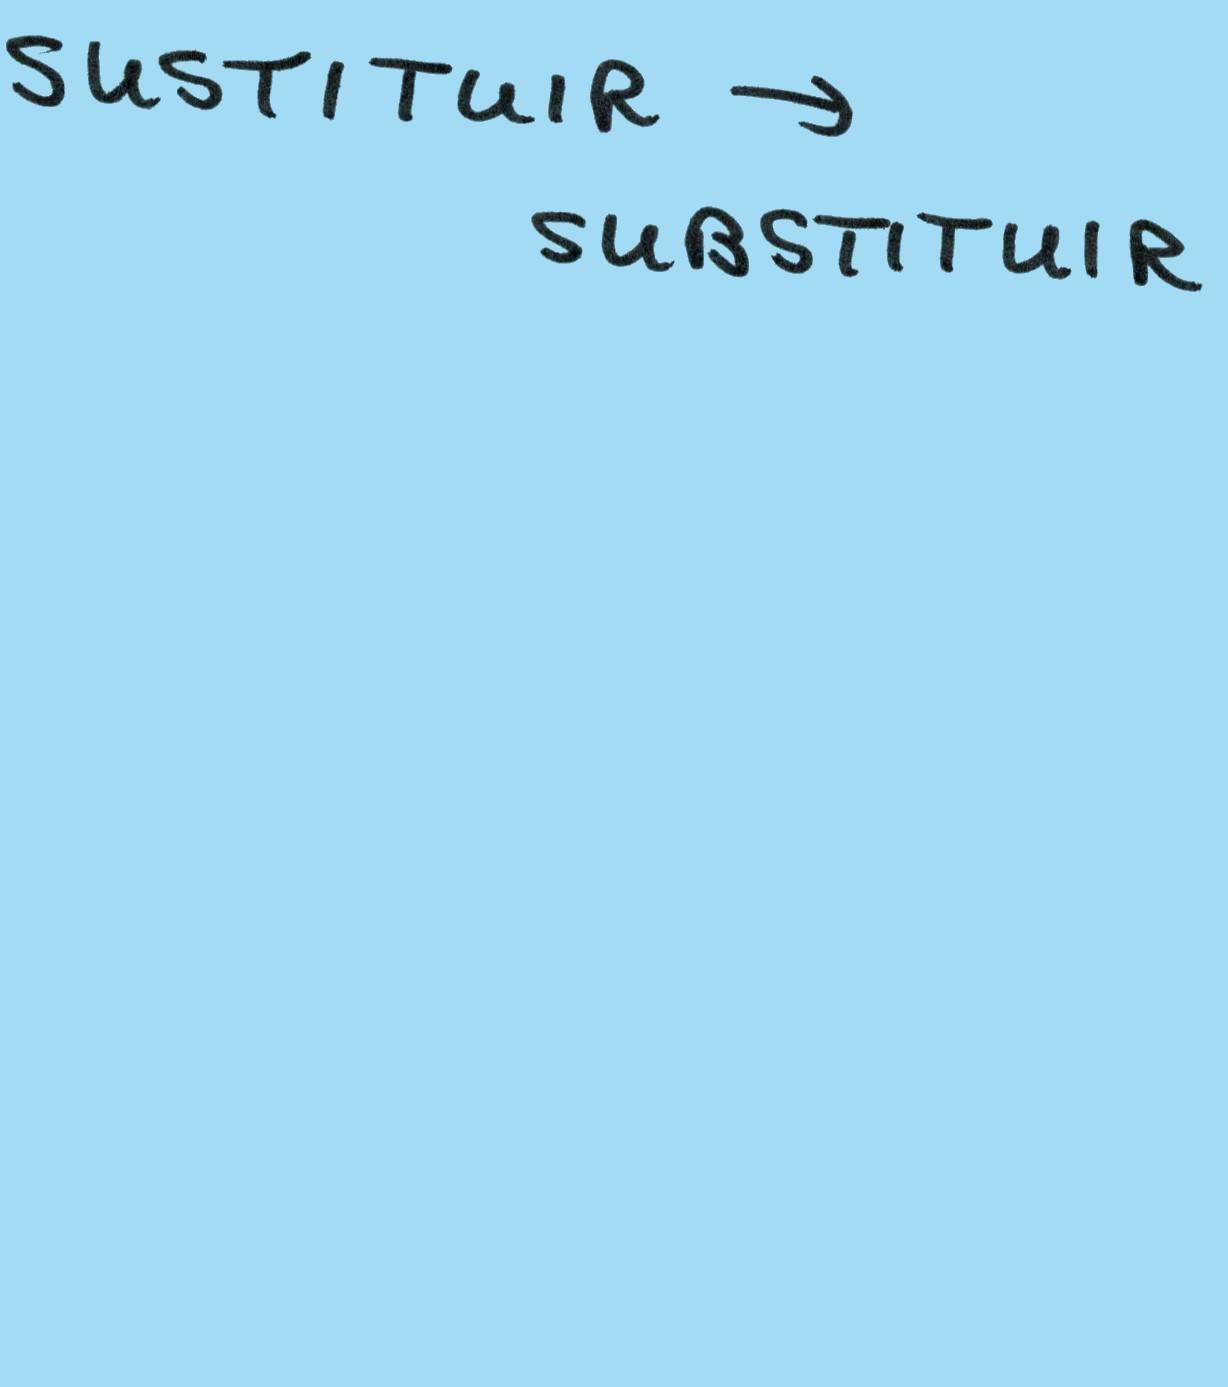 SUSTITUIR →
SUBSTITUIR